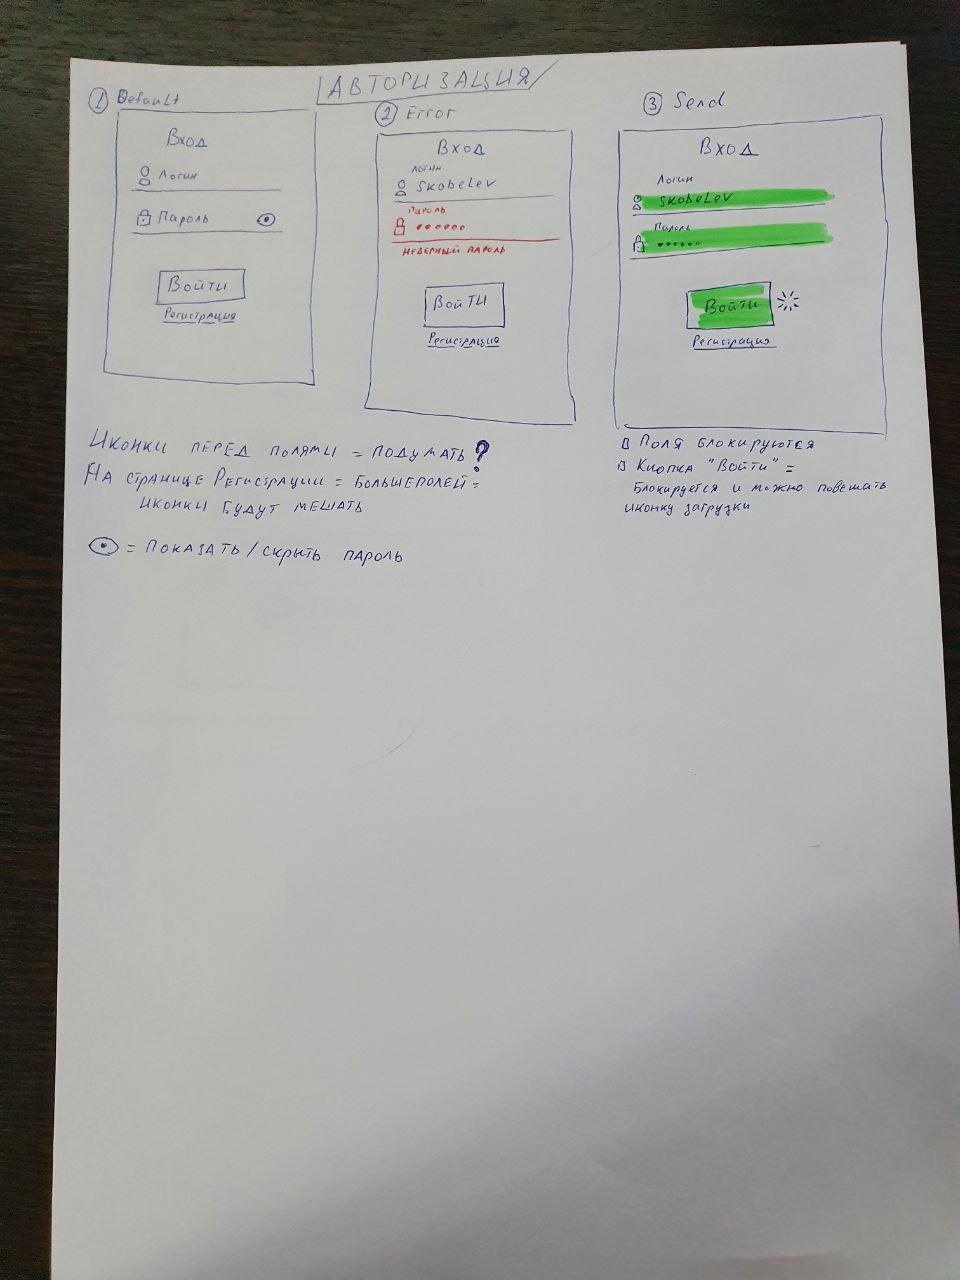 АВТОРИЗАЦИЯ
1 Default
Вход
Логин
Пароль
Войти
Регистрация
2 Error
Вход
Логин
Skobelev
Пароль
••••••
НЕВЕРНЫЙ ПАРОЛЬ
Войти
Регистрация
3 Send
Вход
Логин
Skobelev
Пароль
••••••
Войти
Регистрация
Иконки перед полями = подумать?
На странице Регистрации = больше полей =
иконки будут мешать
= Показать / скрыть пароль
Поля блокируются
Кнопка "Войти" =
блокируется и можно повешать
иконку загрузки